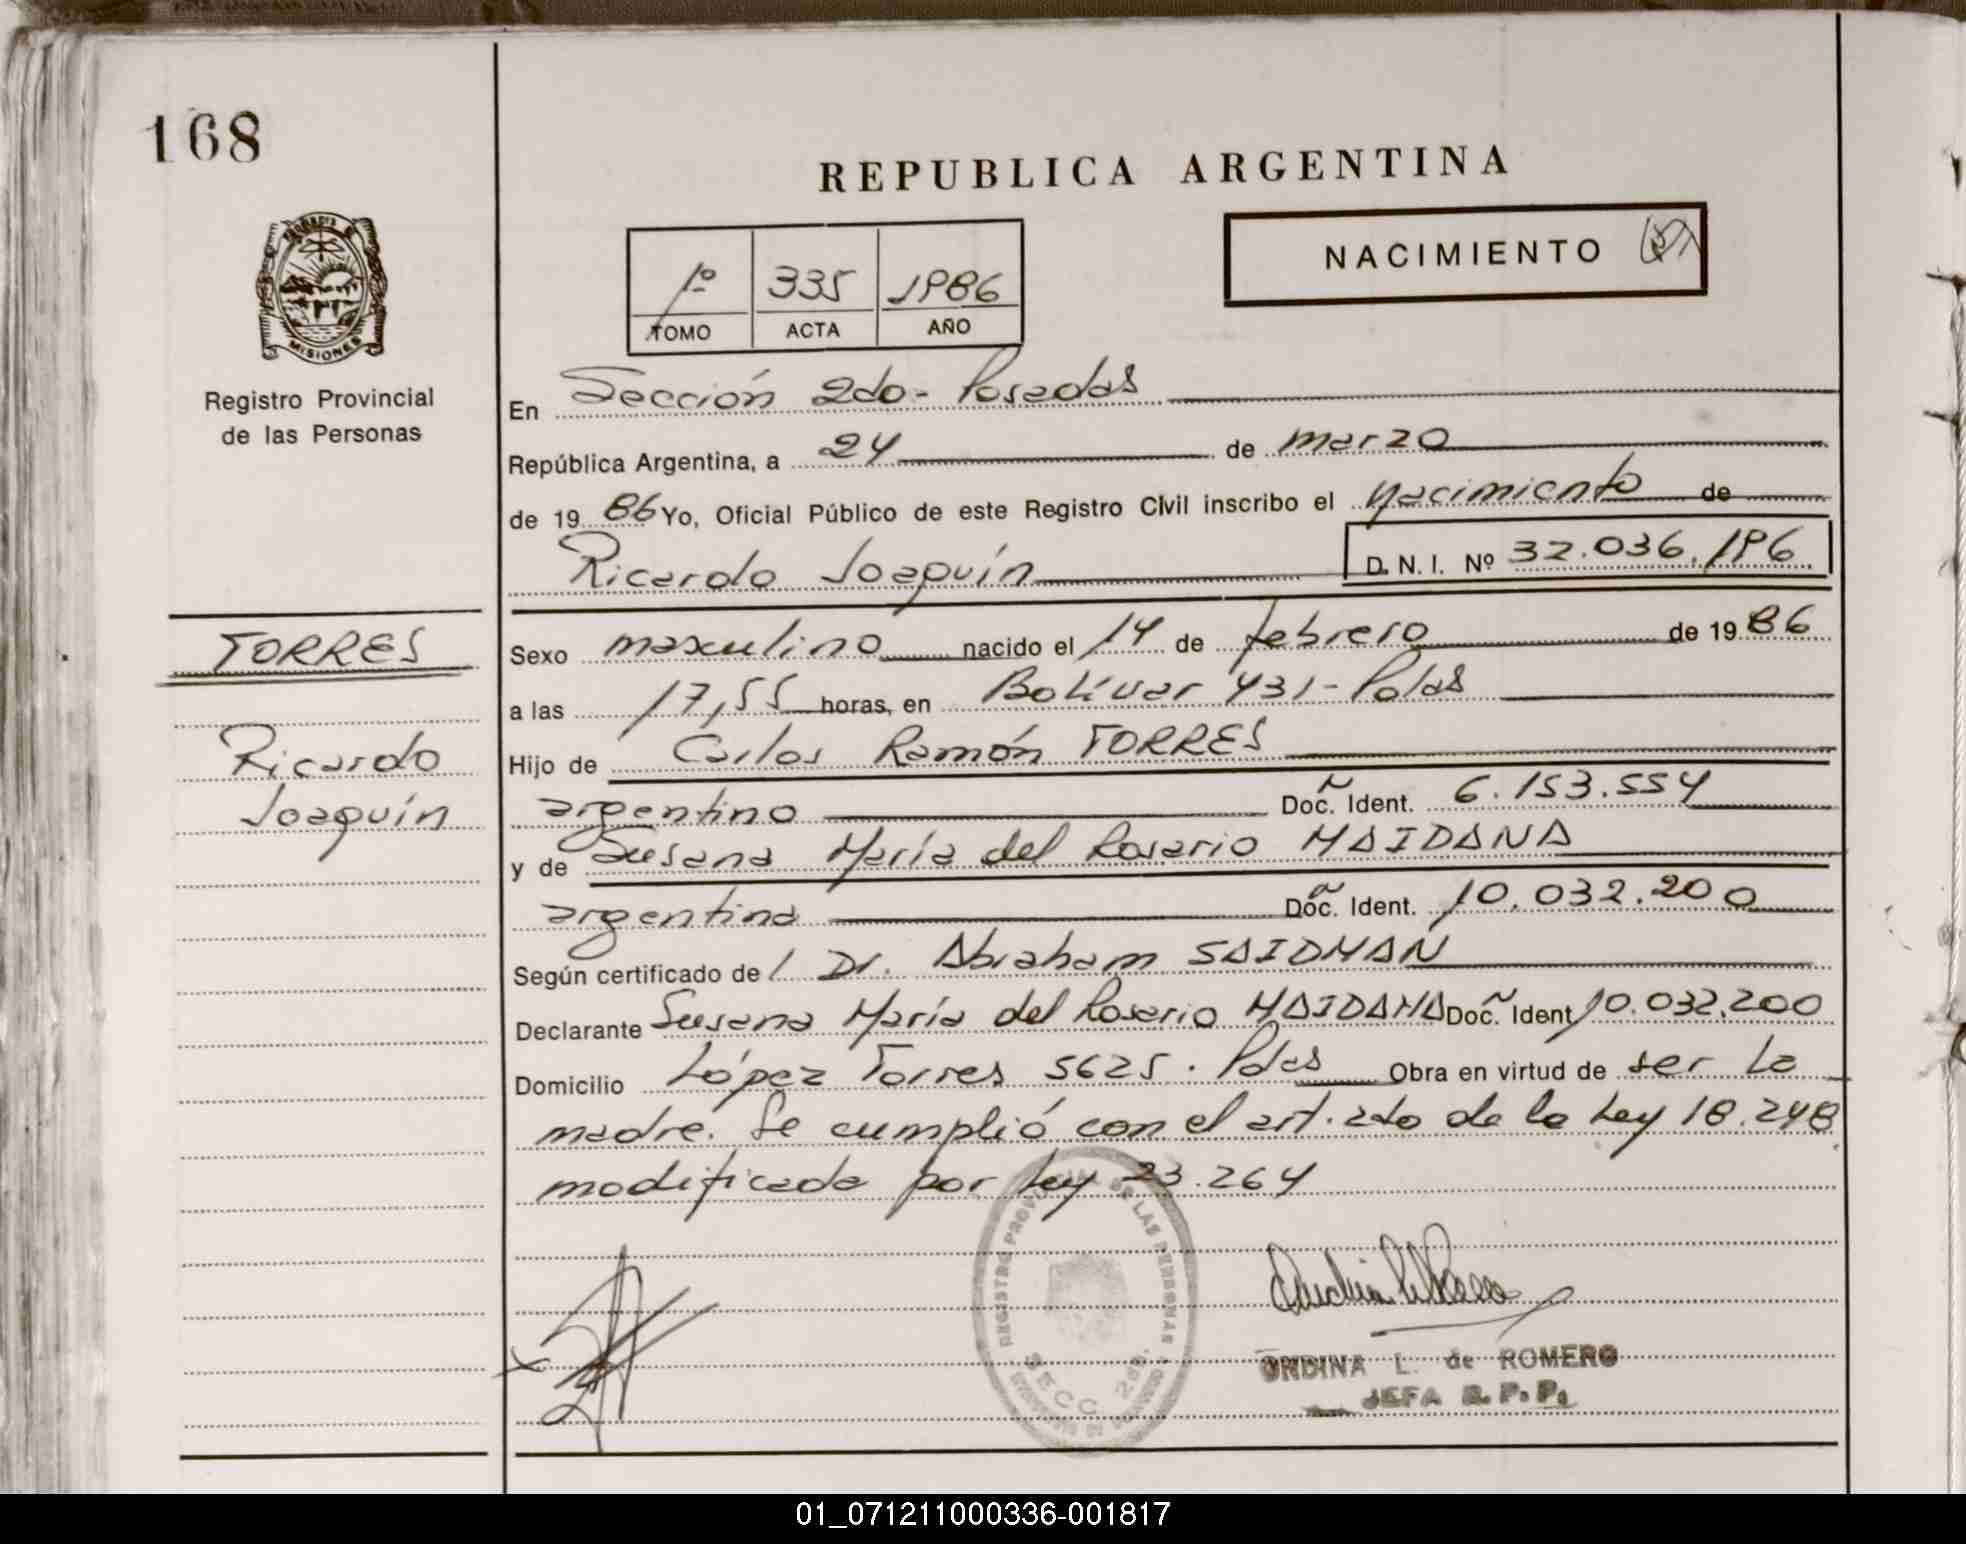 168
REPUBLICA ARGENTINA
NACIMIENTO
1º 335 1986
TOMO ACTA AÑO
MISIONES
Registro Provincial
de las Personas
En Sección 2do - Posadas
República Argentina, a 24 de marzo
de 1986 Yo, Oficial Público de este Registro Civil inscribo el Nacimiento de
Ricardo Joaquín D. N. I. Nº 32.036.196
TORRES
Ricardo
Joaquín
Sexo masculino nacido el 14 de febrero de 1986
a las 17,55 horas, en Bolívar 431 - Pdas
Hijo de Carlos Ramón TORRES
argentino Doc. Ident. 6.153.554
y de Susana María del Rosario MAIDANA
argentina Doc. Ident. 10.032.200
Según certificado del Dr. Abraham SAIDMAN
Declarante Susana María del Rosario MAIDANA Doc. Ident 10.032.200
Domicilio López Torres 5625. Pdas Obra en virtud de ser la
madre. Se cumplió con el art. 2do de la Ley 18.248
modificada por Ley 23.264
REGISTRO PROVINCIAL DE LAS PERSONAS
SECC. 2da.
ONDINA L. de ROMERO
JEFA R. P. P.
01_071211000336-001817